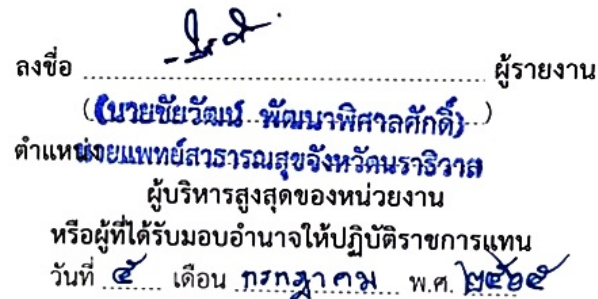 ลงชื่อ ........................ ผู้รายงาน
(นายชัยวัฒน์ พัฒนาพิศาลศักดิ์)
ตำแหน่งนายแพทย์สาธารณสุขจังหวัดนราธิวาส
ผู้บริหารสูงสุดของหน่วยงาน
หรือผู้ที่ได้รับมอบอำนาจให้ปฏิบัติราชการแทน
วันที่ ๕ เดือน กรกฎาคม พ.ศ. ๒๕๖๕